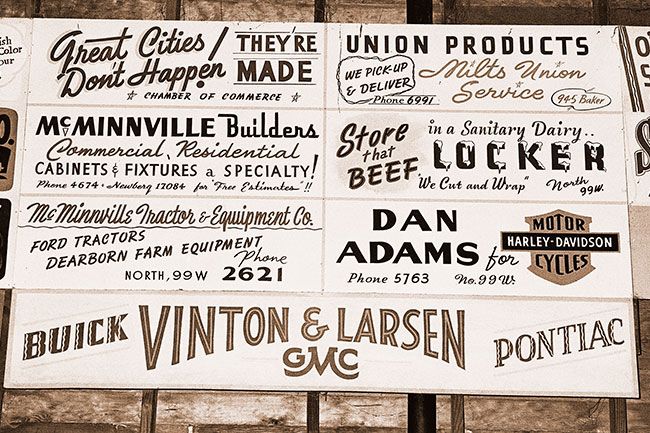 ish
Color
our
Great Cities / THEY'RE
Don't Happen MADE
★ CHAMBER OF COMMERCE ★
UNION PRODUCTS
WE PICK-UP
& DELIVER
Phone 6991
Milts Union
Service
945 Baker
McMINNVILLE Builders
Commercial, Residential
CABINETS & FIXTURES a SPECIALTY!
Phone 4674 - Newberg 17084 for "Free Estimates"!!
Store
that
BEEF
in a Sanitary Dairy..
LOCKER
"We Cut and Wrap" North 99W.
McMinnville Tractor & Equipment Co.
FORD TRACTORS
DEARBORN FARM EQUIPMENT
NORTH, 99W Phone 2621
DAN
ADAMS for
Phone 5763 No. 99W.
MOTOR
HARLEY-DAVIDSON
CYCLES
BUICK VINTON & LARSEN PONTIAC
GMC